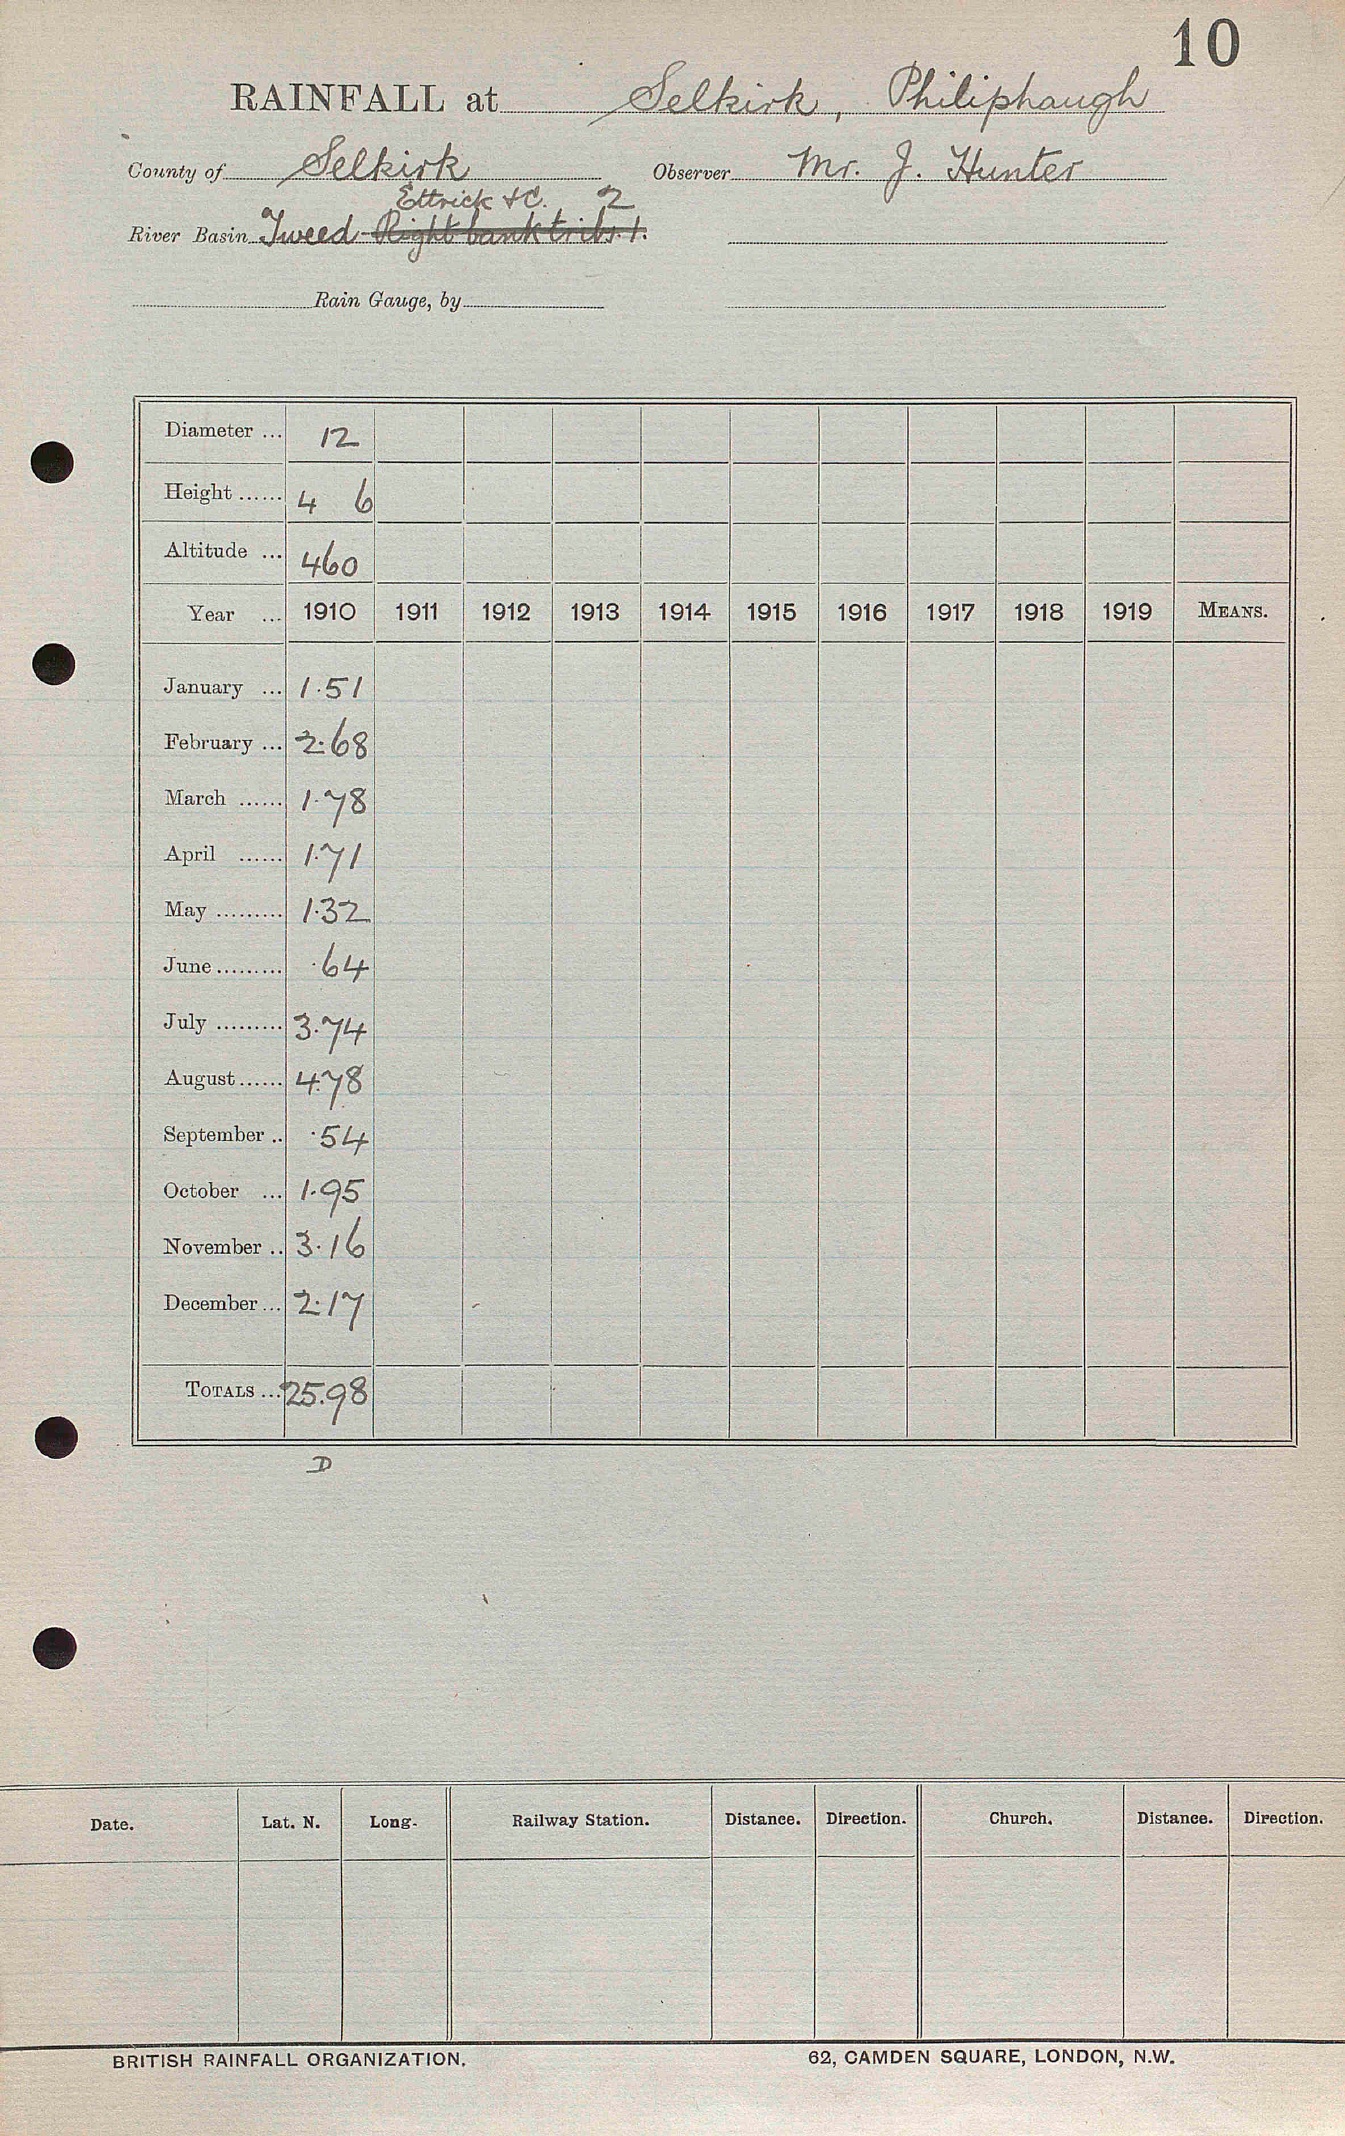 10
RAINFALL at Selkirk, Philiphaugh
County of Selkirk Observer Mr. J. Hunter
Ettrick &C. 2
River Basin Tweed Right bank tribs. 1.
Rain Gauge, by
Diameter ... 12
Height ...... 4 6
Altitude ... 460
Year ... 1910 1911 1912 1913 1914 1915 1916 1917 1918 1919 MEANS.
January ... 1.51
February ... 2.68
March ...... 1.78
April ...... 1.71
May ......... 1.32
June ......... .64
July ......... 3.74
August ...... 4.78
September .. .54
October ... 1.95
November .. 3.16
December ... 2.17
TOTALS ... 25.98
D
Date. Lat. N. Long. Railway Station. Distance. Direction. Church. Distance. Direction.
BRITISH RAINFALL ORGANIZATION. 62, CAMDEN SQUARE, LONDON, N.W.